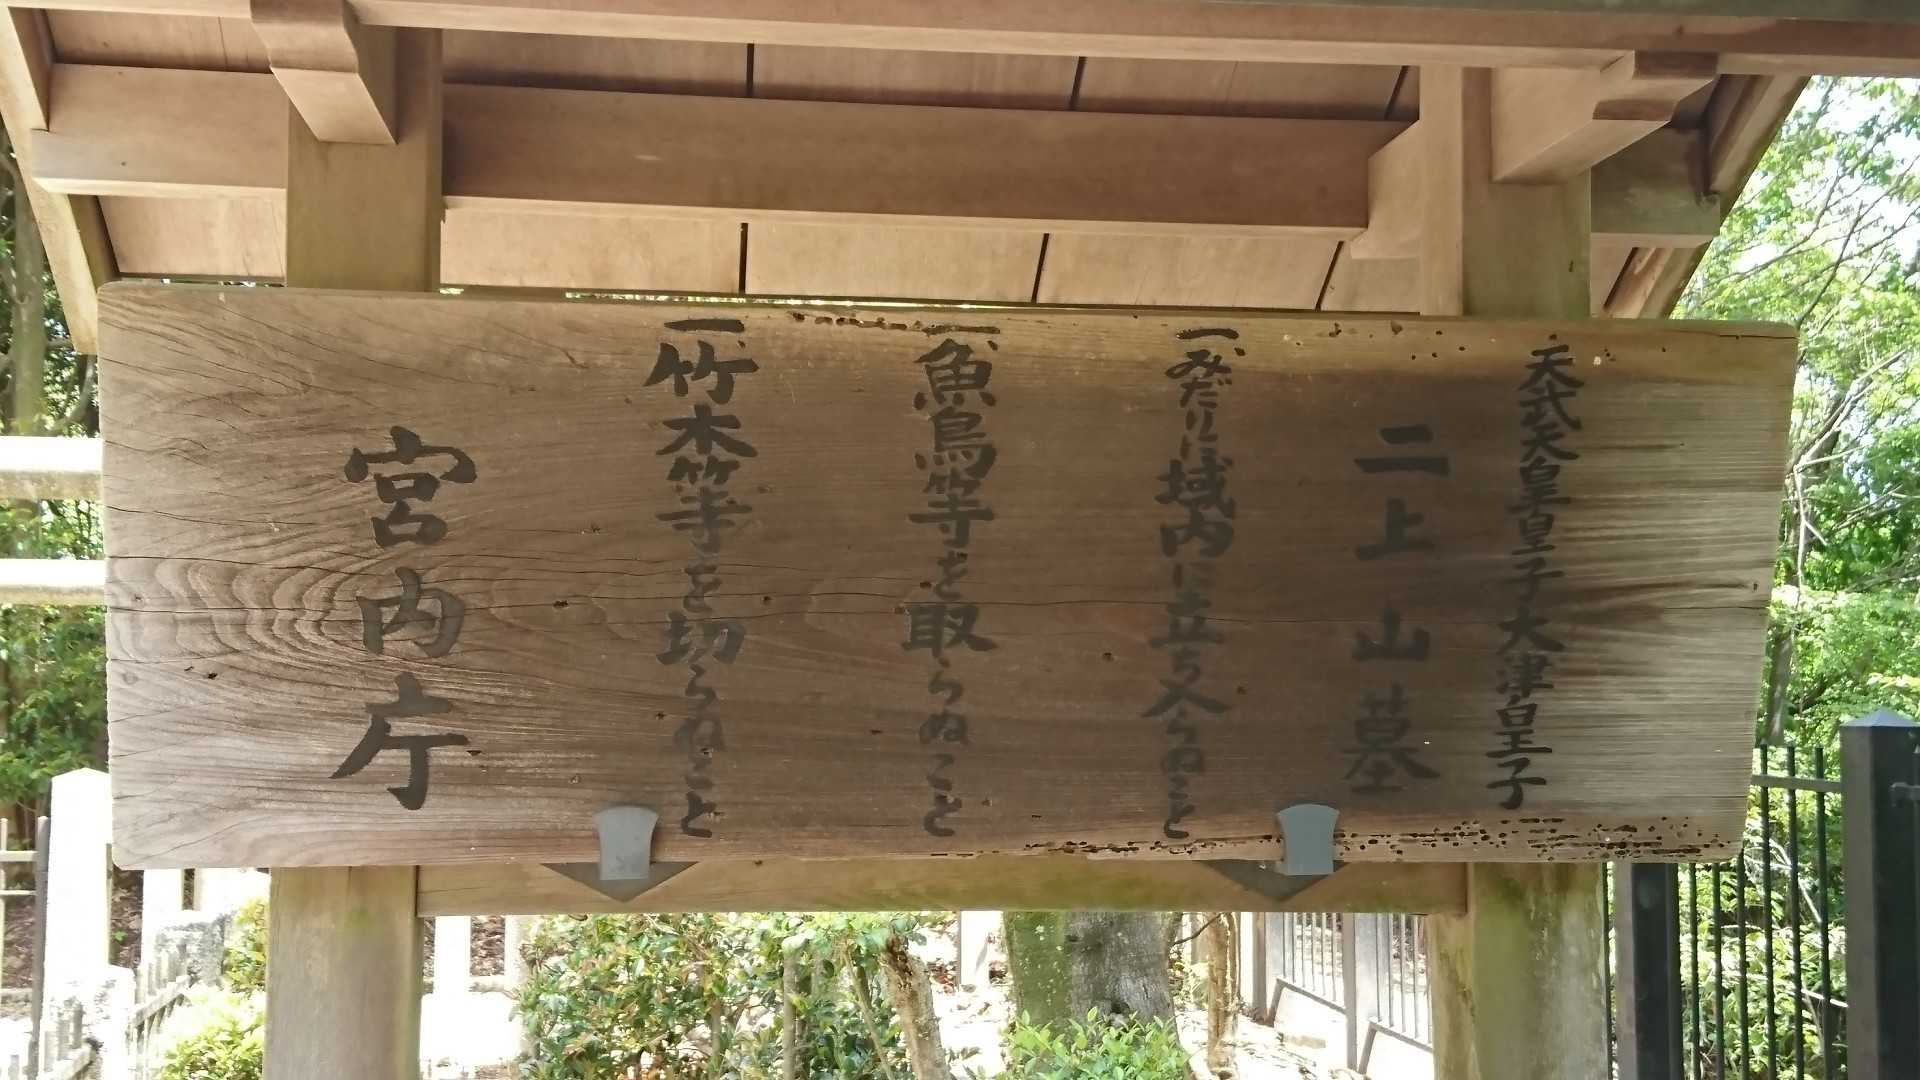 天武天皇皇子大津皇子
二上山墓
一、みだりに域内に立ち入らぬこと
一、魚鳥等を取らぬこと
一、竹木等を切らぬこと
宮内庁